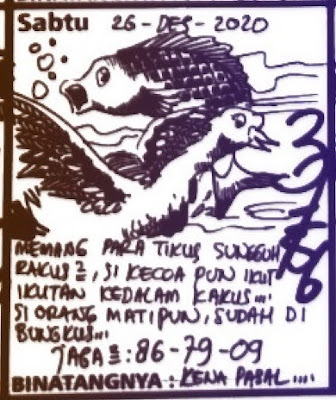 Sabtu 26-DES-2020
MEMANG PARA TIKUS SUNGGUH
RAKUS2, SI KECOA PUN IKUT
IKUTAN KEDALAM KAKUS....
SI ORANG MATIPUN, SUDAH DI
BUNGKUS...
JAGA2 : 86-79-09
BINATANGNYA : KENA PASAL....